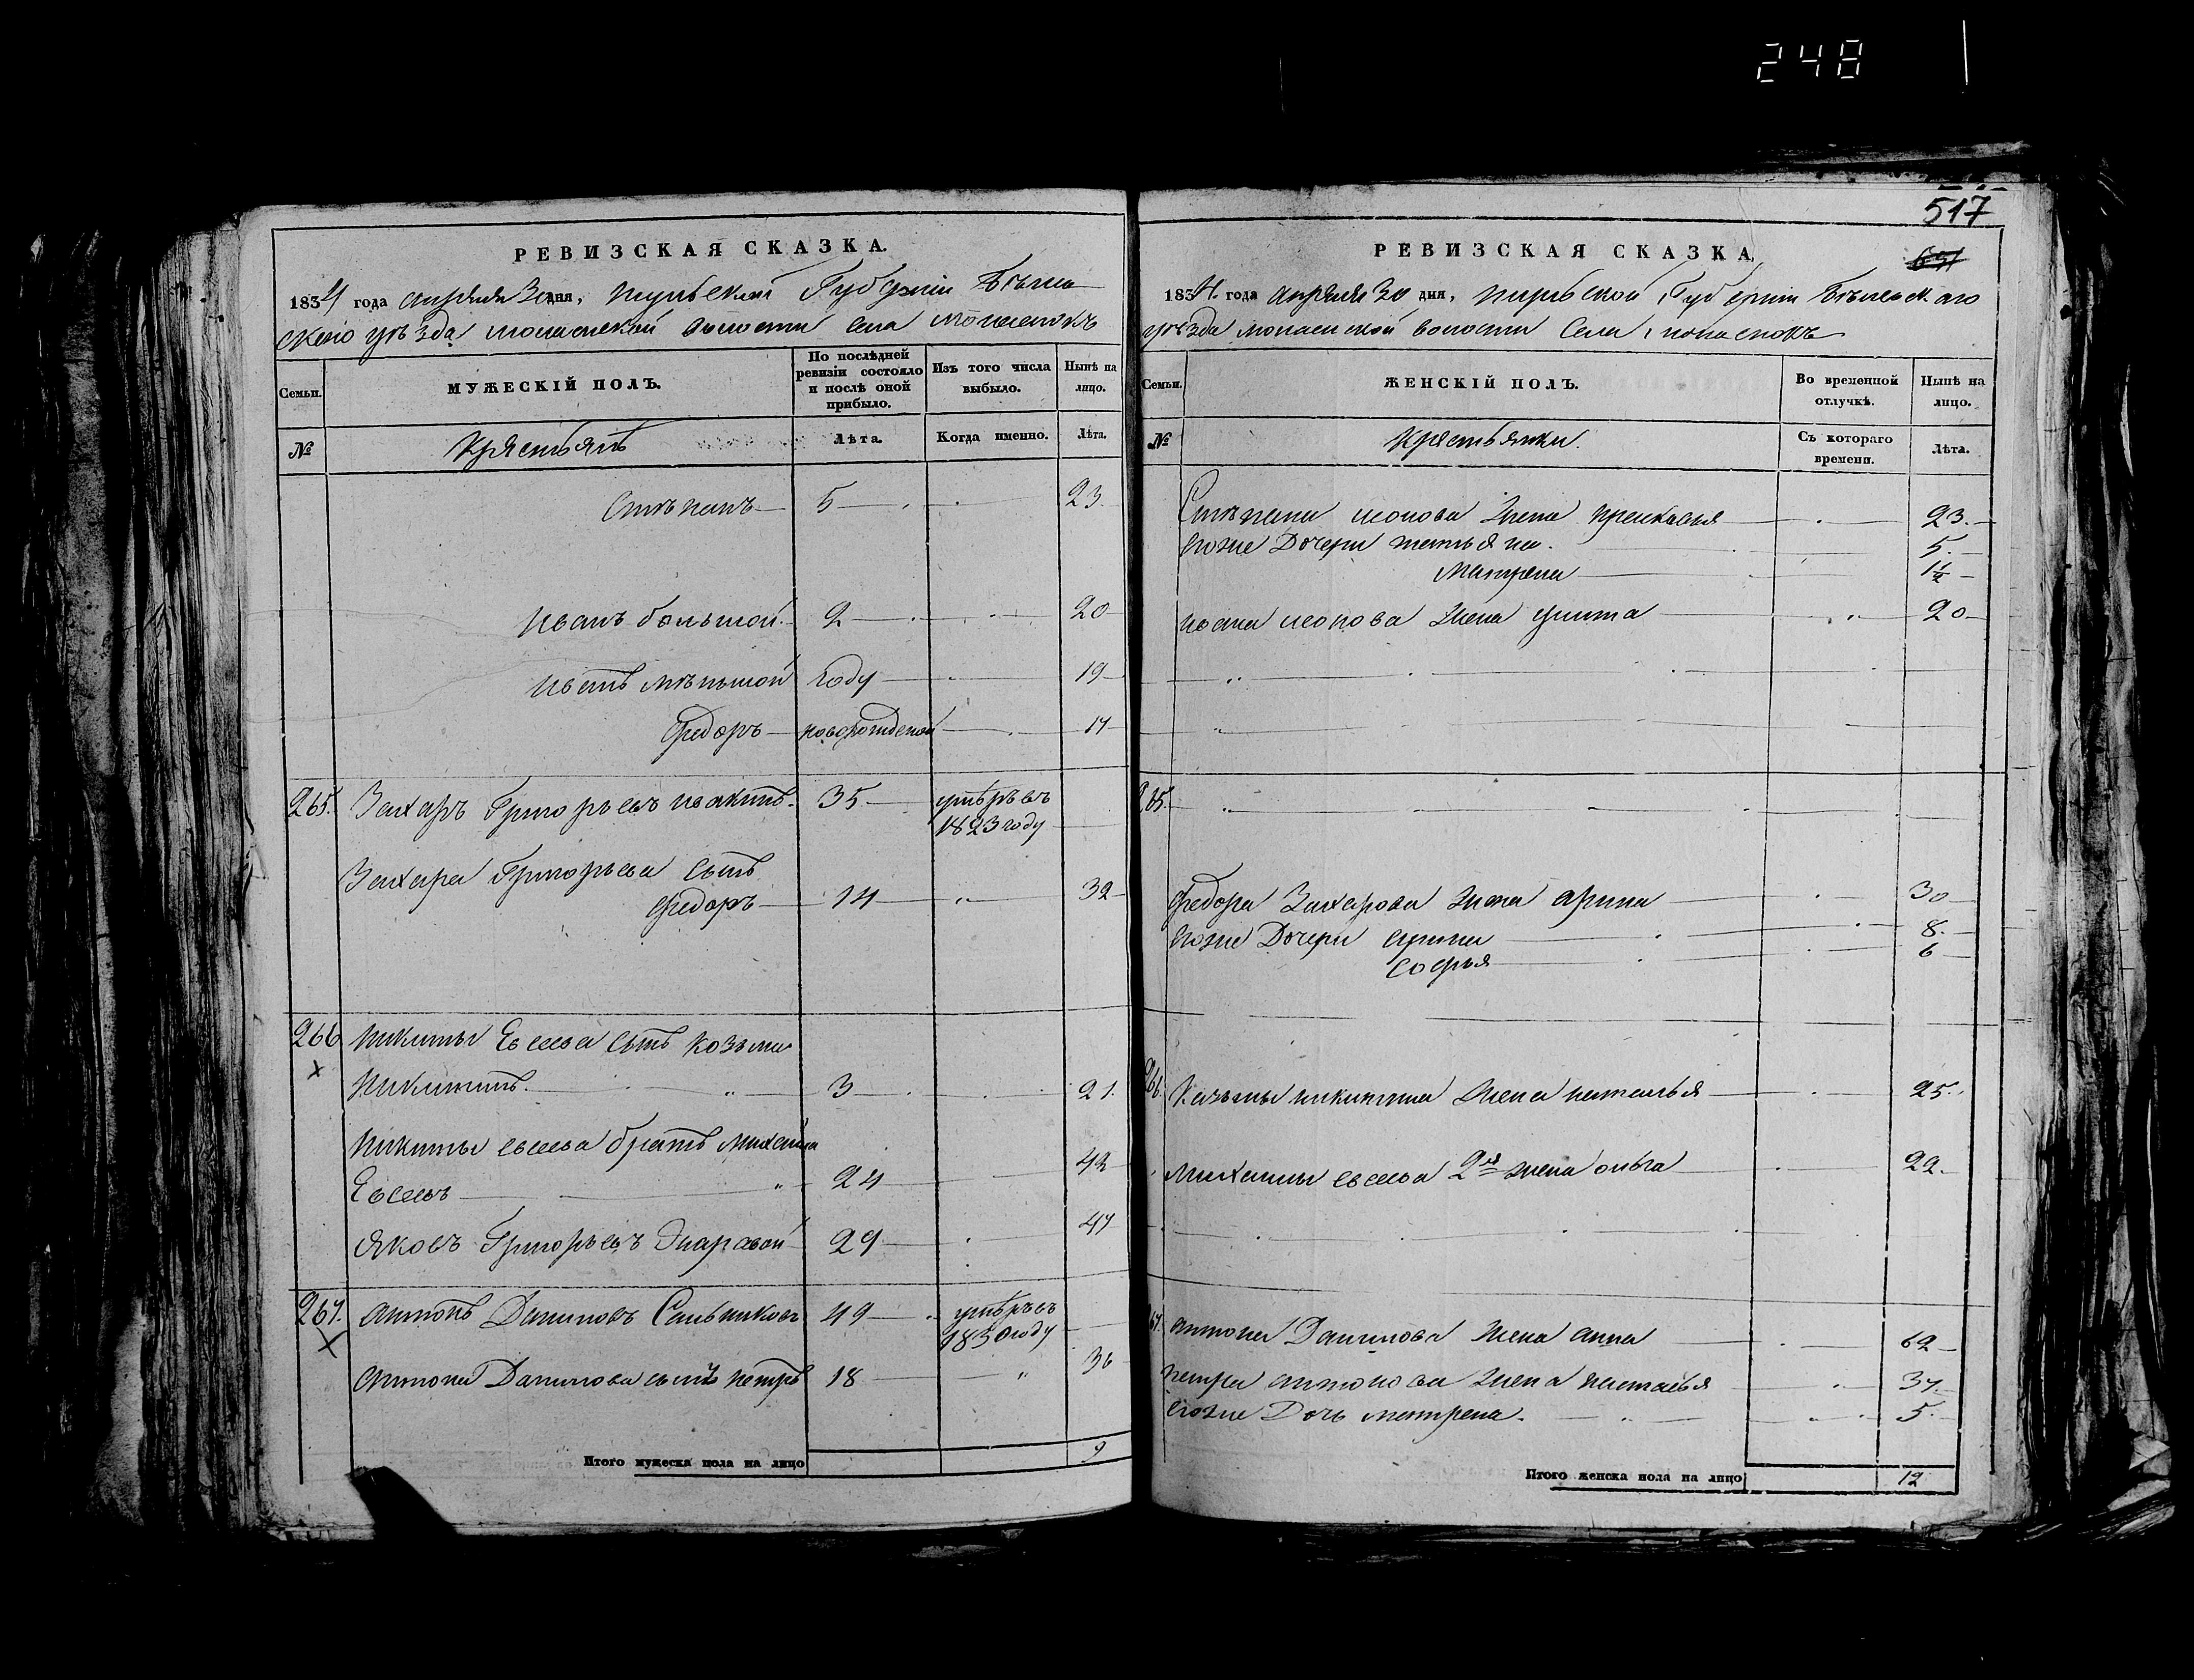 248
517
РЕВИЗСКАЯ СКАЗКА.
1834 года апреля 30 дня,
Губернiи
уѣзда волости села
Семьи.
МУЖЕСКІЙ ПОЛЪ.
По послѣдней ревизіи состояло и послѣ оной прибыло.
Изъ того числа выбыло.
Нынѣ на лицо.
№
Крестьянъ
Лѣта.
Когда именно.
Лѣта.
Степанъ 5 23.
Иванъ большой. 2 20
Иванъ меньшой году 19
Федоръ новорожденой 17
265. Захаръ Григорьевъ 35 умеръ въ
1823 году
Захара Григорьева сынъ
Федоръ 14 32
266 Никиты Евсеева сынъ Козьма
Никитинъ. 3 21.
Никиты евсеева братъ Михайла
Евсеевъ 24 42
Яковъ Григорьевъ 29 47
267. Антонъ Даниловъ 49 умеръ въ
1830 году
Антона Данилова сынъ Петръ 18 36
Итого мужеска пола на лицо 9
РЕВИЗСКАЯ СКАЗКА
1834. года апреля 30 дня, Губернiи
уѣзда волости села
Семьи.
ЖЕНСКІЙ ПОЛЪ.
Во временной отлучкѣ.
Нынѣ на лицо.
№
Крестьянки.
Съ котораго времени.
Лѣта.
Степана жена Прасковья 23.
Егоже Дочери татьяна. 5.
Матрена 1½
Ивана жена улита 20
265.
Федора Захарова жена арина 30
Егоже Дочери 8.
Софья 6
266. Казьмы никитина жена наталья 25.
Михаилы евсеева 2я жена ольга 22.
67. антона Данилова жена анна 62
Петра антонова жена наталья 37.
Егоже Дочь матрена. 5.
Итого женска пола на лицо 12